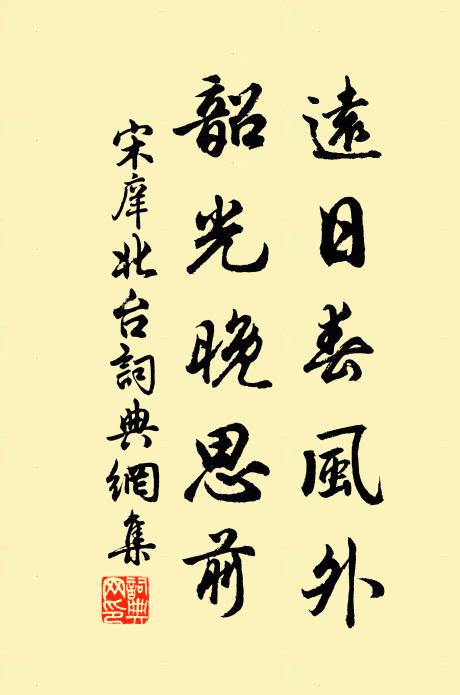 遠日春風外
韶光晚思前
宋庠北台詞典網集
詞典網印